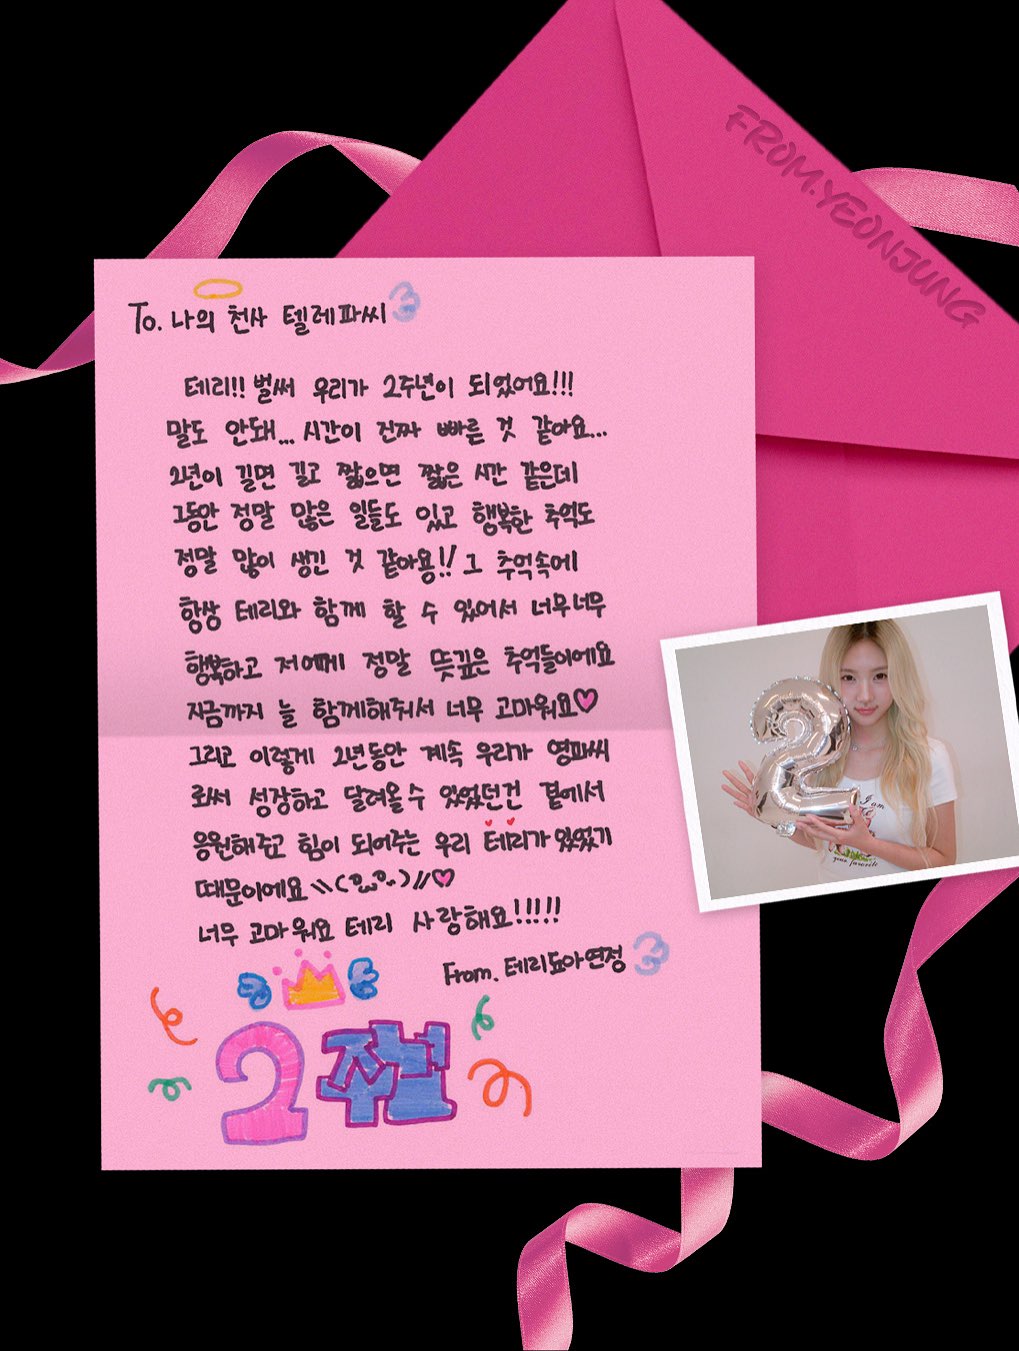 FROM.YEONJUNG
To. 나의 천사 텔레파씨
테리!! 벌써 우리가 2주년이 되었어요!!!
말도 안돼... 시간이 진짜 빠른 것 같아요...
2년이 길면 길고 짧으면 짧은 시간 같은데
그동안 정말 많은 일들도 있고 행복한 추억도
정말 많이 생긴 것 같아용!! 그 추억속에
항상 테리와 함께 할 수 있어서 너무너무
행복하고 저에게 정말 뜻깊은 추억들이에요
지금까지 늘 함께해줘서 너무 고마워요♡
그리고 이렇게 2년동안 계속 우리가 영파씨
로써 성장하고 달려올수 있었던건 곁에서
응원해주고 힘이 되어주는 우리 테리가 있었기
때문이에요
너무 고마워요 테리 사랑해요!!!!!
From. 테리됴아연정
2쭈년
I am
your favorite